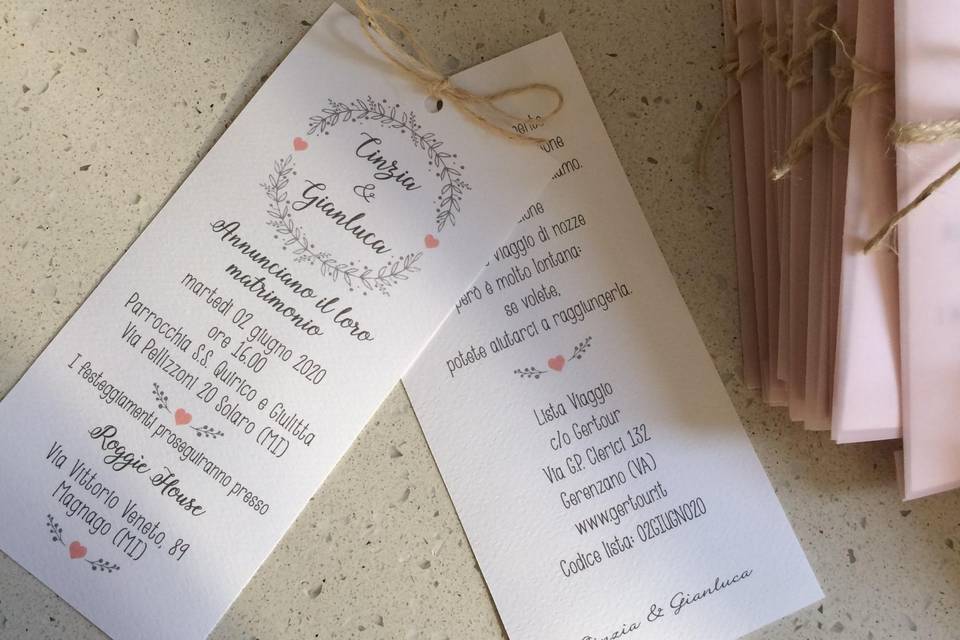 Cinzia
&
Gianluca
Annunciano il loro
matrimonio
martedì 02 giugno 2020
ore 16.00
Parrocchia S.S. Quirico e Giulitta
Via Pellizzoni 20 Solaro (MI)
I festeggiamenti proseguiranno presso
Roggie House
Via Vittorio Veneto, 89
Magnago (MI)
viaggio di nozze
però è molto lontana:
se volete,
potete aiutarci a raggiungerla.
Lista Viaggio
c/o Gertour
Via G.P. Clerici 132
Gerenzano (VA)
www.gertour.it
Codice lista: 02GIUGNO20
Cinzia & Gianluca